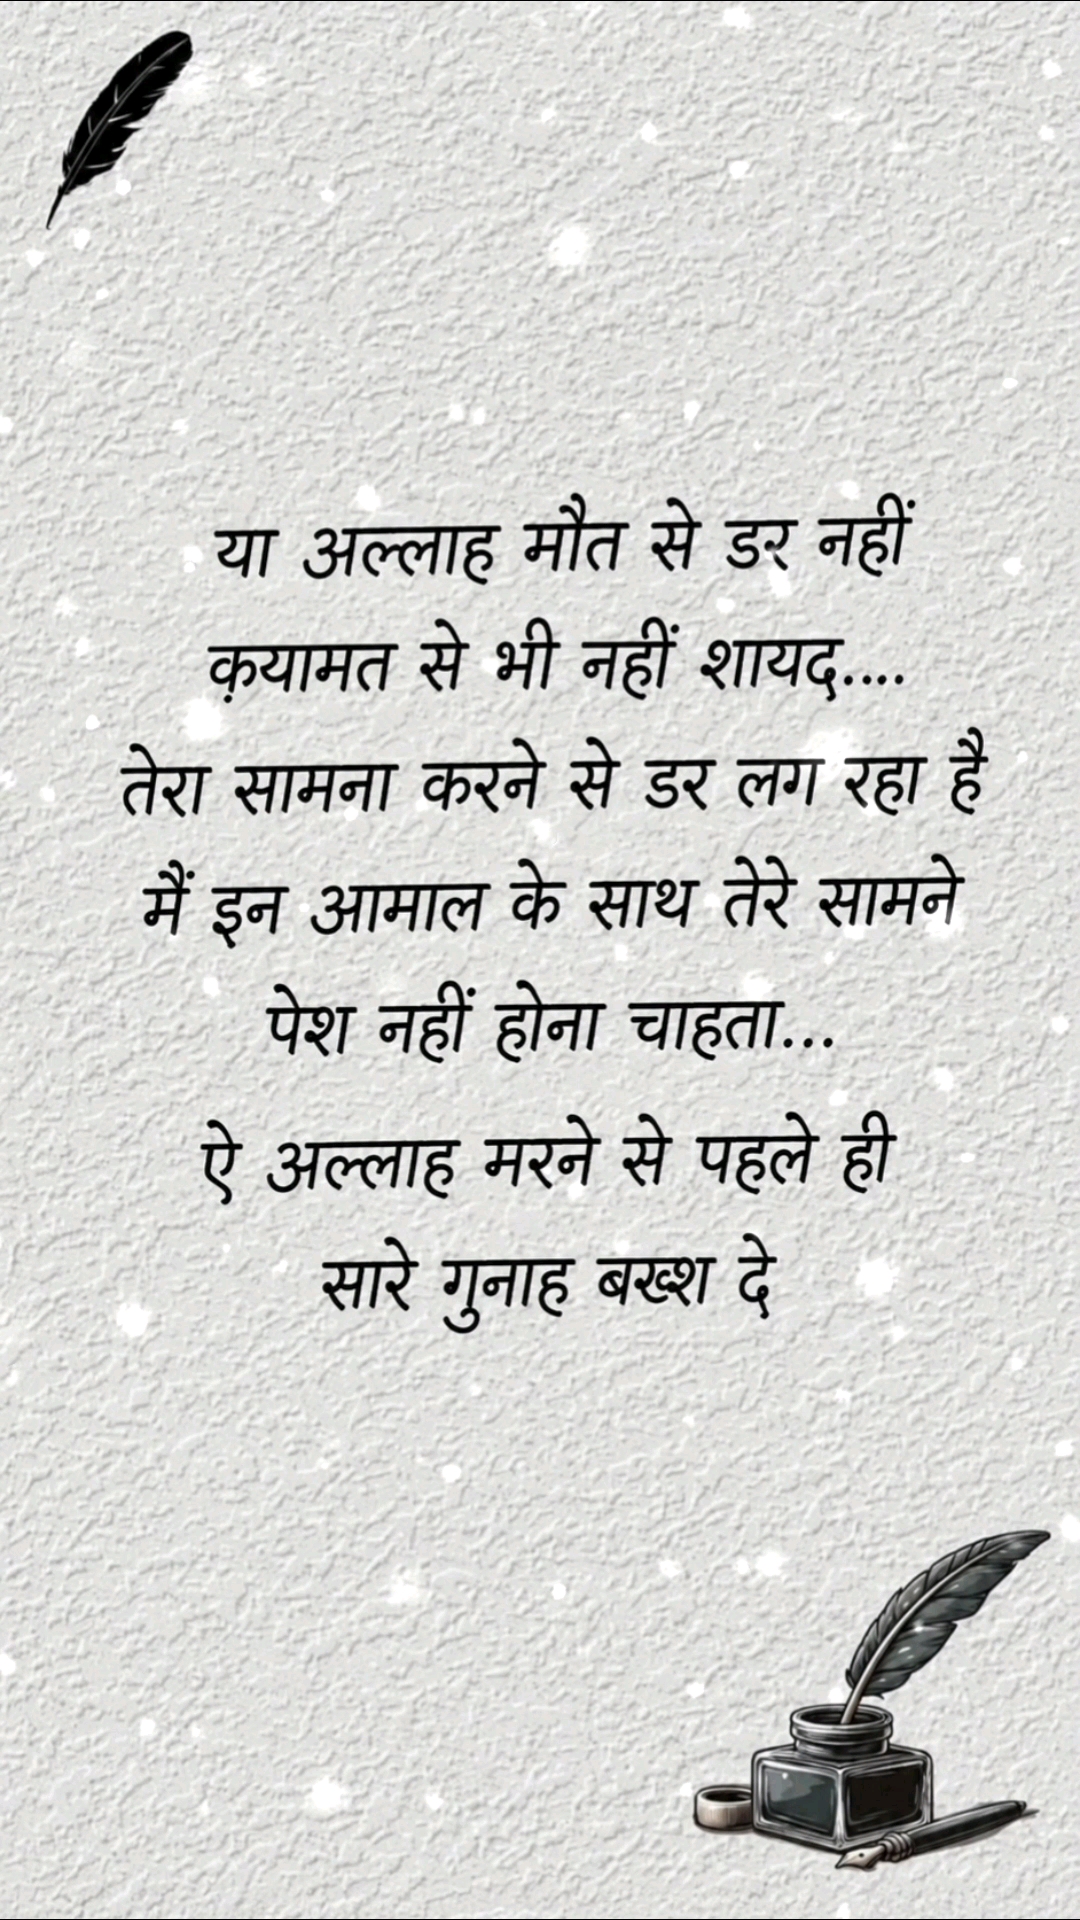 या अल्लाह मौत से डर नहीं
क़यामत से भी नहीं शायद....
तेरा सामना करने से डर लग रहा है
मैं इन आमाल के साथ तेरे सामने
पेश नहीं होना चाहता...
ऐ अल्लाह मरने से पहले ही
सारे गुनाह बख्श दे